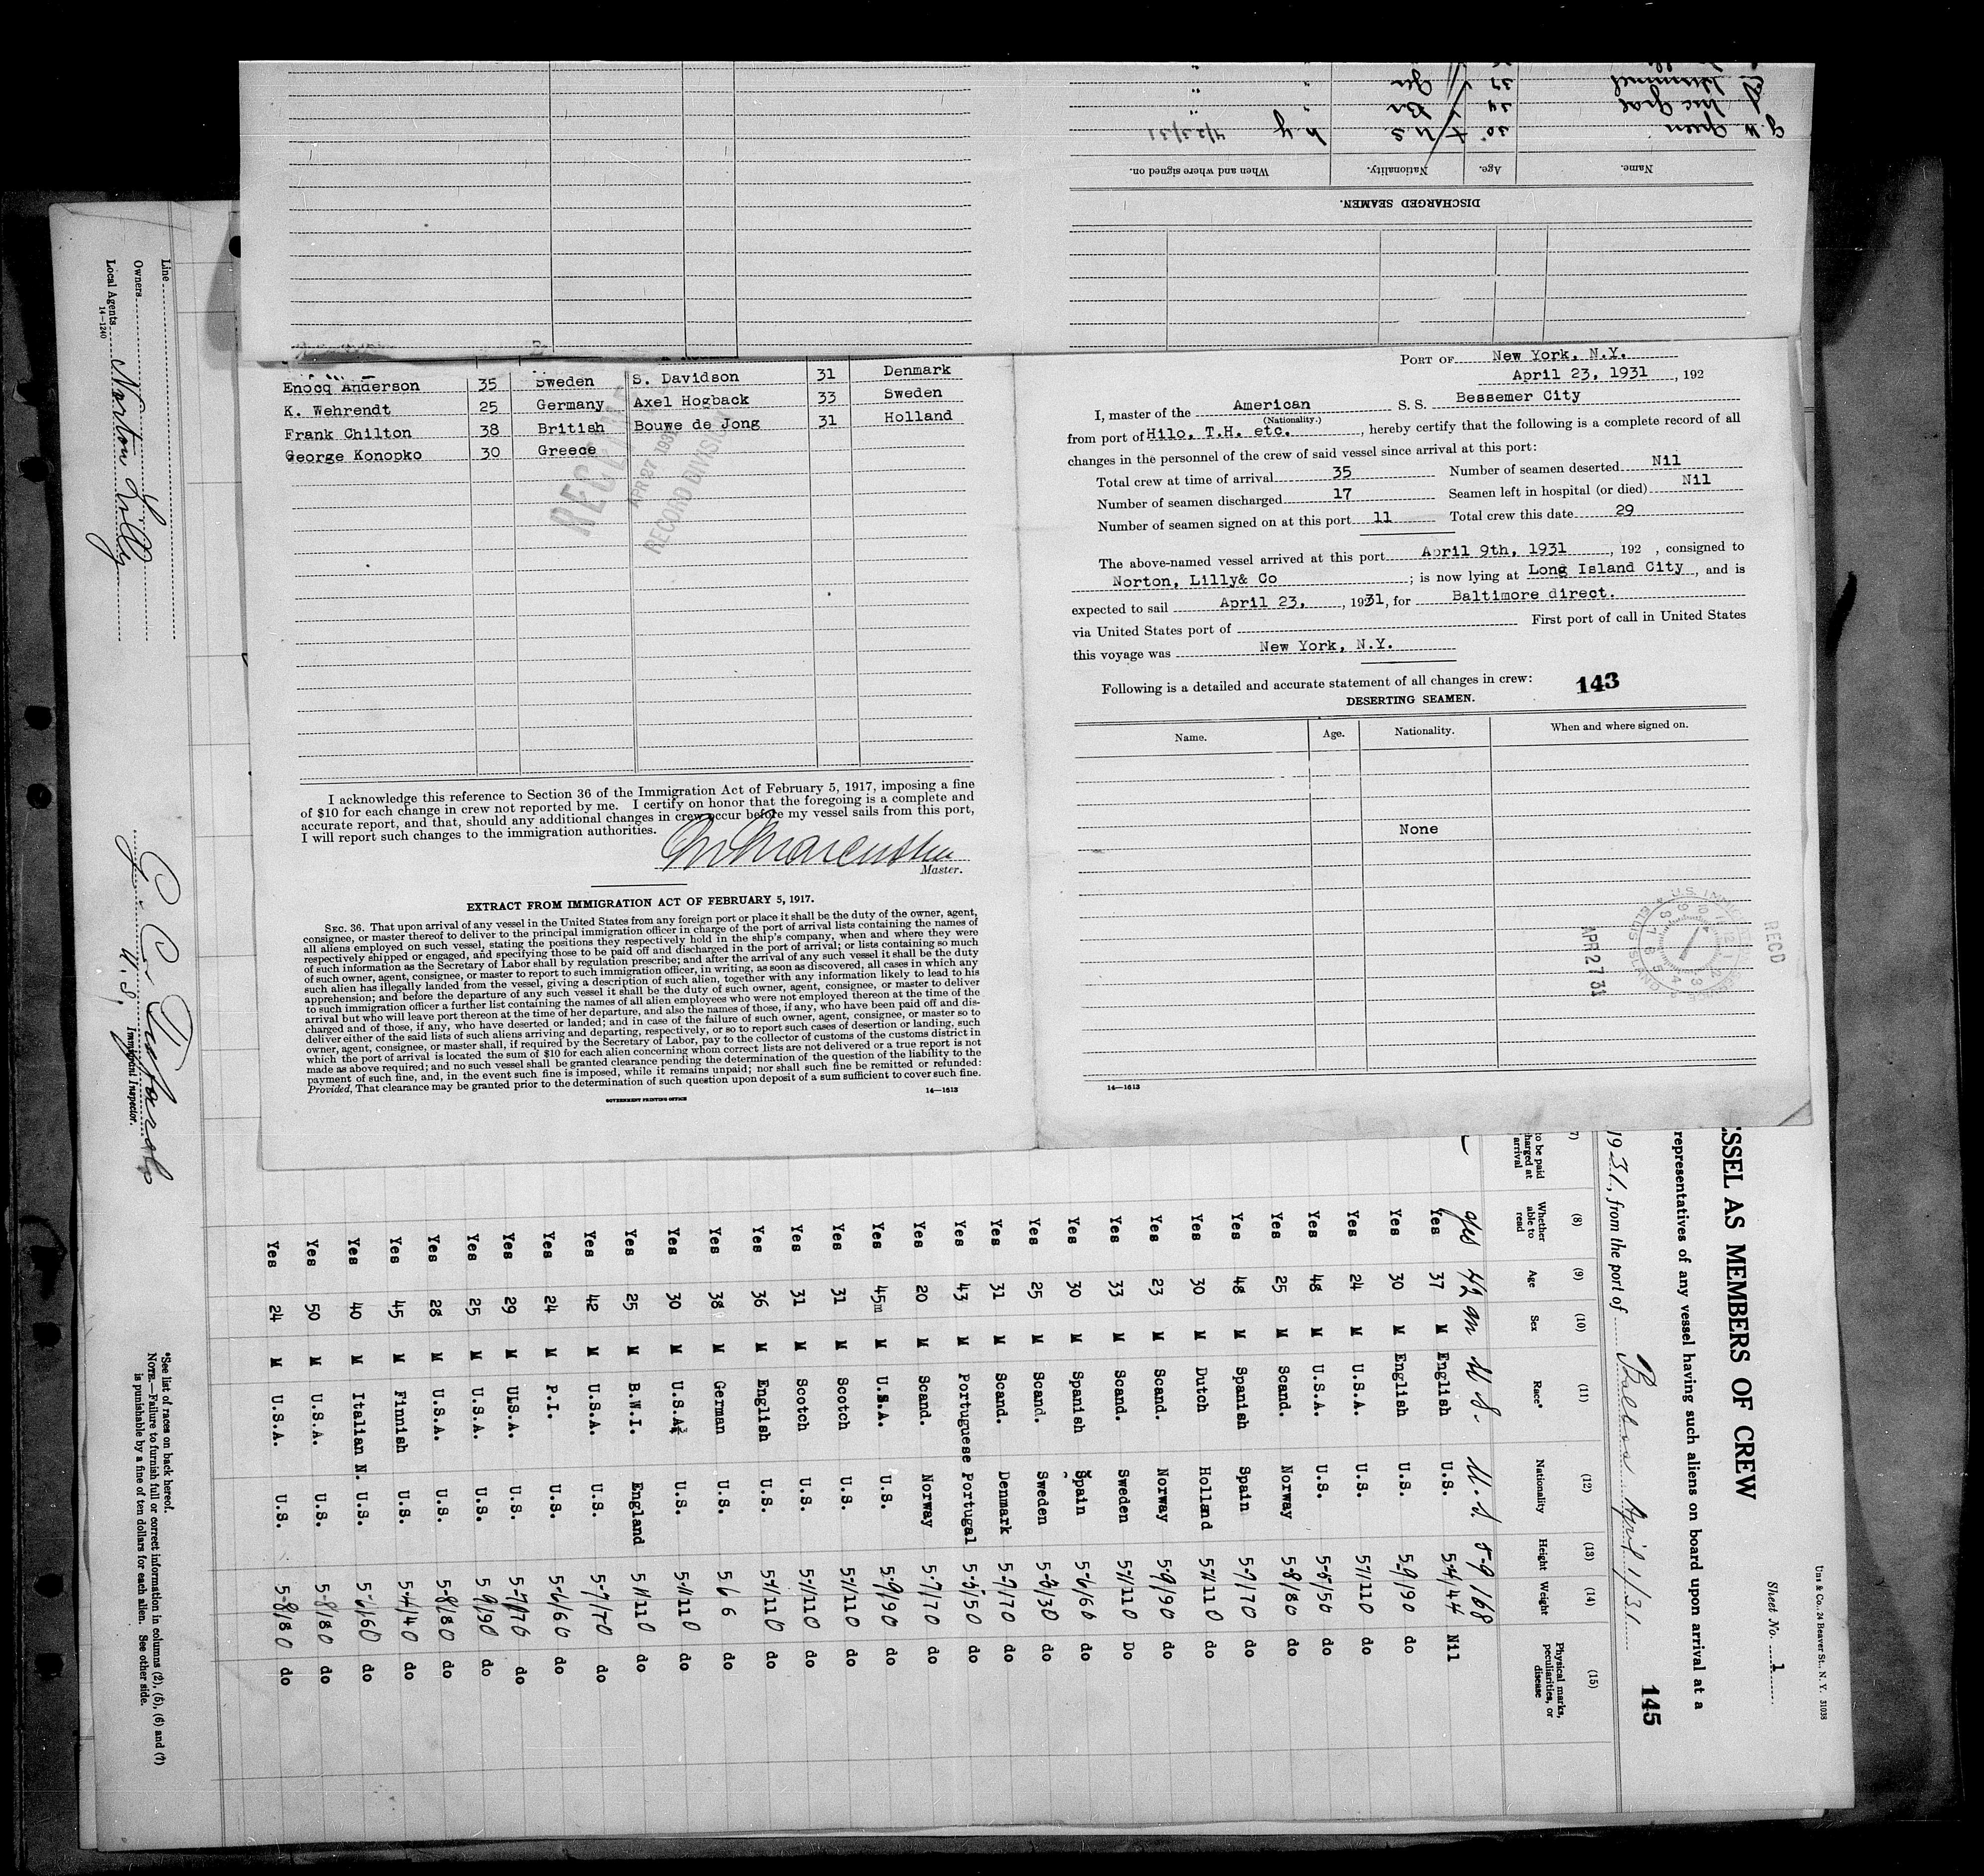 DISCHARGED SEAMEN.
Name. Age. Nationality. When and where signed on.
30 U.S. N.Y. 4/23/31
34 Br "
37 Ger "
Enocq Anderson 35 Sweden S. Davidson 31 Denmark
K. Wehrendt 25 Germany Axel Hogback 33 Sweden
Frank Chilton 38 British Bouwe de Jong 31 Holland
George Konopko 30 Greece
APR 27 1931
RECORD DIVISION
I acknowledge this reference to Section 36 of the Immigration Act of February 5, 1917, imposing a fine
of $10 for each change in crew not reported by me. I certify on honor that the foregoing is a complete and
accurate report, and that, should any additional changes in crew occur before my vessel sails from this port,
I will report such changes to the immigration authorities.
Master.
EXTRACT FROM IMMIGRATION ACT OF FEBRUARY 5, 1917.
SEC. 36. That upon arrival of any vessel in the United States from any foreign port or place it shall be the duty of the owner, agent,
consignee, or master thereof to deliver to the principal immigration officer in charge of the port of arrival lists containing the names of
all aliens employed on such vessel, stating the positions they respectively hold in the ship's company, when and where they were
respectively shipped or engaged, and specifying those to be paid off and discharged in the port of arrival; or lists containing so much
of such information as the Secretary of Labor shall by regulation prescribe; and after the arrival of any such vessel it shall be the duty
of such owner, agent, consignee, or master to report to such immigration officer, in writing, as soon as discovered, all cases in which any
such alien has illegally landed from the vessel, giving a description of such alien, together with any information likely to lead to his
apprehension; and before the departure of any such vessel it shall be the duty of such owner, agent, consignee, or master to deliver
to such immigration officer a further list containing the names of all alien employees who were not employed thereon at the time of the
arrival but who will leave port thereon at the time of her departure, and also the names of those, if any, who have been paid off and dis-
charged and of those, if any, who have deserted or landed; and in case of the failure of such owner, agent, consignee, or master so to
deliver either of the said lists of such aliens arriving and departing, respectively, or so to report such cases of desertion or landing, such
owner, agent, consignee, or master shall, if required by the Secretary of Labor, pay to the collector of customs of the customs district in
which the port of arrival is located the sum of $10 for each alien concerning whom correct lists are not delivered or a true report is not
made as above required; and no such vessel shall be granted clearance pending the determination of the question of the liability to the
payment of such fine, and, in the event such fine is imposed, while it remains unpaid; nor shall such fine be remitted or refunded:
Provided, That clearance may be granted prior to the determination of such question upon deposit of a sum sufficient to cover such fine.
GOVERNMENT PRINTING OFFICE 14—1613
PORT OF New York, N.Y.
April 23, 1931, 192
I, master of the American S. S. Bessemer City
(Nationality.)
from port of Hilo, T.H. etc., hereby certify that the following is a complete record of all
changes in the personnel of the crew of said vessel since arrival at this port:
Total crew at time of arrival 35 Number of seamen deserted Nil
Number of seamen discharged 17 Seamen left in hospital (or died) Nil
Number of seamen signed on at this port 11 Total crew this date 29
The above-named vessel arrived at this port April 9th, 1931, 192 , consigned to
Norton, Lilly& Co ; is now lying at Long Island City, and is
expected to sail April 23, , 1931, for Baltimore direct.
via United States port of First port of call in United States
this voyage was New York, N.Y.
Following is a detailed and accurate statement of all changes in crew: 143
DESERTING SEAMEN.
Name. Age. Nationality. When and where signed on.
None
RECD
APR 27 31
14—1613
Line
Owners
Local Agents Norton Lilly
14-1240
U.S. Immigrant Inspector.
*See list of races on back hereof.
NOTE.—Failure to furnish full or correct information in columns (2), (5), (6) and (7)
is punishable by a fine of ten dollars for each alien. See other side.
Sheet No. 1
ESSEL AS MEMBERS OF CREW
representatives of any vessel having such aliens on board upon arrival at a
1931, from the port of Balboa April 1/31
145
(8) (9) (10) (11) (12) (13) (14) (15)
Whether able to read Age Sex Race* Nationality Height Weight Physical marks, peculiarities, or disease
yes 42 m U.S. U.S. 5-9 168
Yes 37 M English U.S. 5-4 144 Nil
Yes 30 M English U.S. 5-9 190 do
Yes 24 M U.S.A. U.S. 5-7 110 do
Yes 48 M U.S.A. U.S. 5-5 150 do
Yes 25 M Scand. Norway 5-8 180 do
Yes 48 M Spanish Spain 5-7 170 do
Yes 30 M Dutch Holland 5-7 110 do
Yes 23 M Scand. Norway 5-9 190 do
Yes 33 M Scand. Sweden 5-7 110 Do
Yes 30 M Spanish Spain 5-6 160 do
Yes 25 M Scand. Sweden 5-3 130 do
Yes 31 M Scand. Denmark 5-7 170 do
Yes 43 M Portuguese Portugal 5-5 150 do
Yes 20 M Scand. Norway 5-7 170 do
Yes 45 M U.S.A. U.S. 5-9 190 do
Yes 31 M Scotch U.S. 5-7 110 do
Yes 31 M Scotch U.S. 5-7 110 do
Yes 36 M English U.S. 5-7 110 do
Yes 38 M German U.S. 5 6 6 do
Yes 30 M U.S.A. U.S. 5-11 110 do
Yes 25 M B.W.I. England 5-11 110 do
Yes 42 M U.S.A. U.S. 5-7 170 do
Yes 24 M P.I. U.S. 5-6 160 do
Yes 29 M ULS.A. U.S. 5-7 170 do
Yes 25 M U.S.A. U.S. 5-9 190 do
Yes 28 M U.S.A. U.S. 5-8 180 do
Yes 45 M Finnish U.S. 5-4 140 do
Yes 40 M Italian N. U.S. 5-6 160 do
Yes 50 M U.S.A. U.S. 5-8 180 do
Yes 24 M U.S.A. U.S. 5-8 180 do